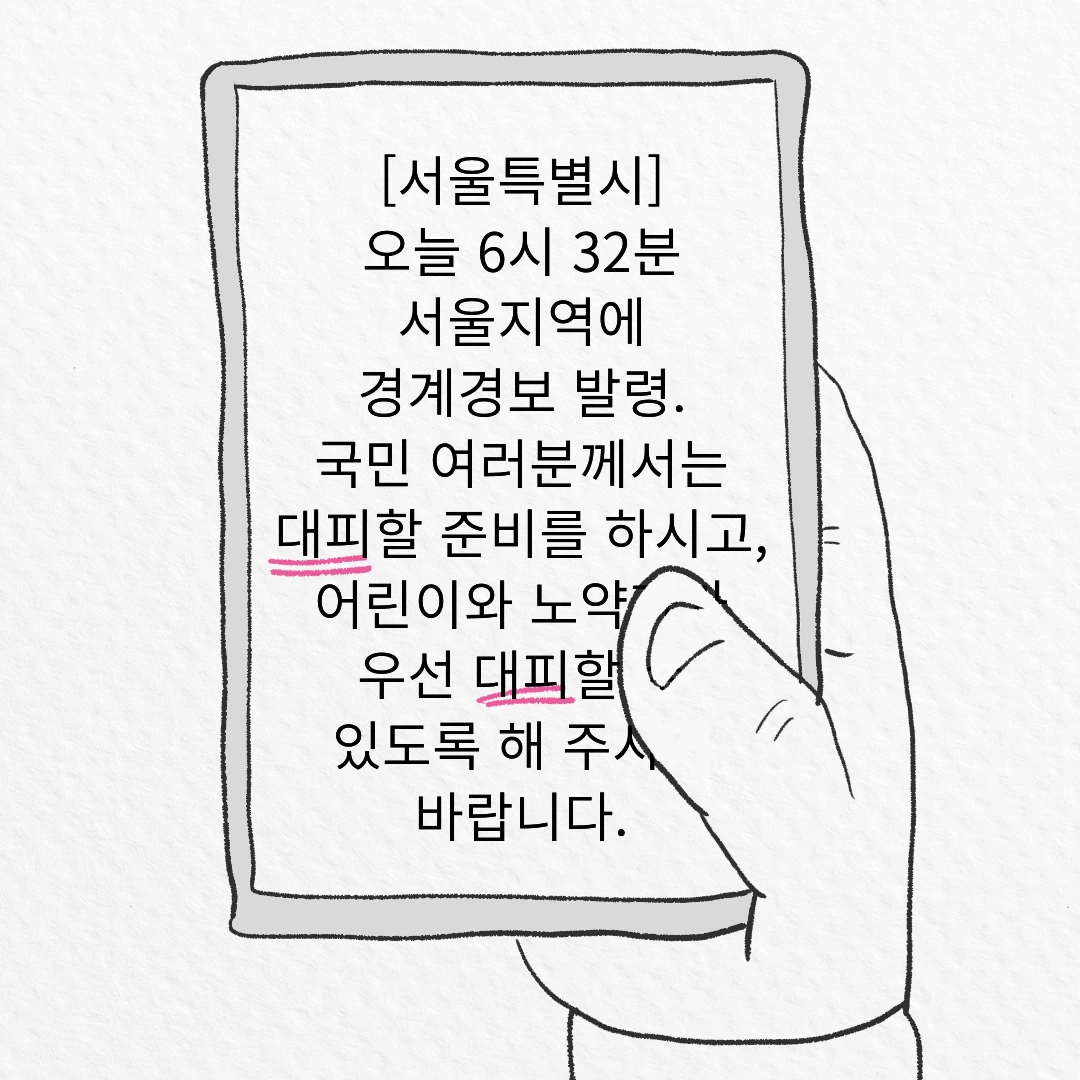 [서울특별시]
오늘 6시 32분
서울지역에
경계경보 발령.
국민 여러분께서는
대피할 준비를 하시고,
어린이와
우선 대피할
있도록 해
바랍니다.